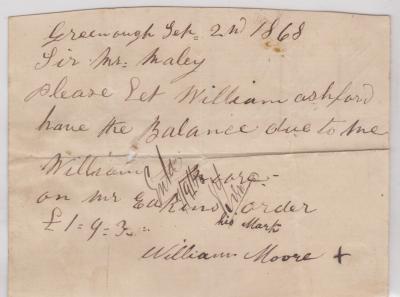 Greenough Sep. 2nd 1868
Sir Mr. Maley
Please Let William ashford
have the Balance due to me
William Moore
on Mr Eakins order
£1=9=3
his Mark
William Moore +